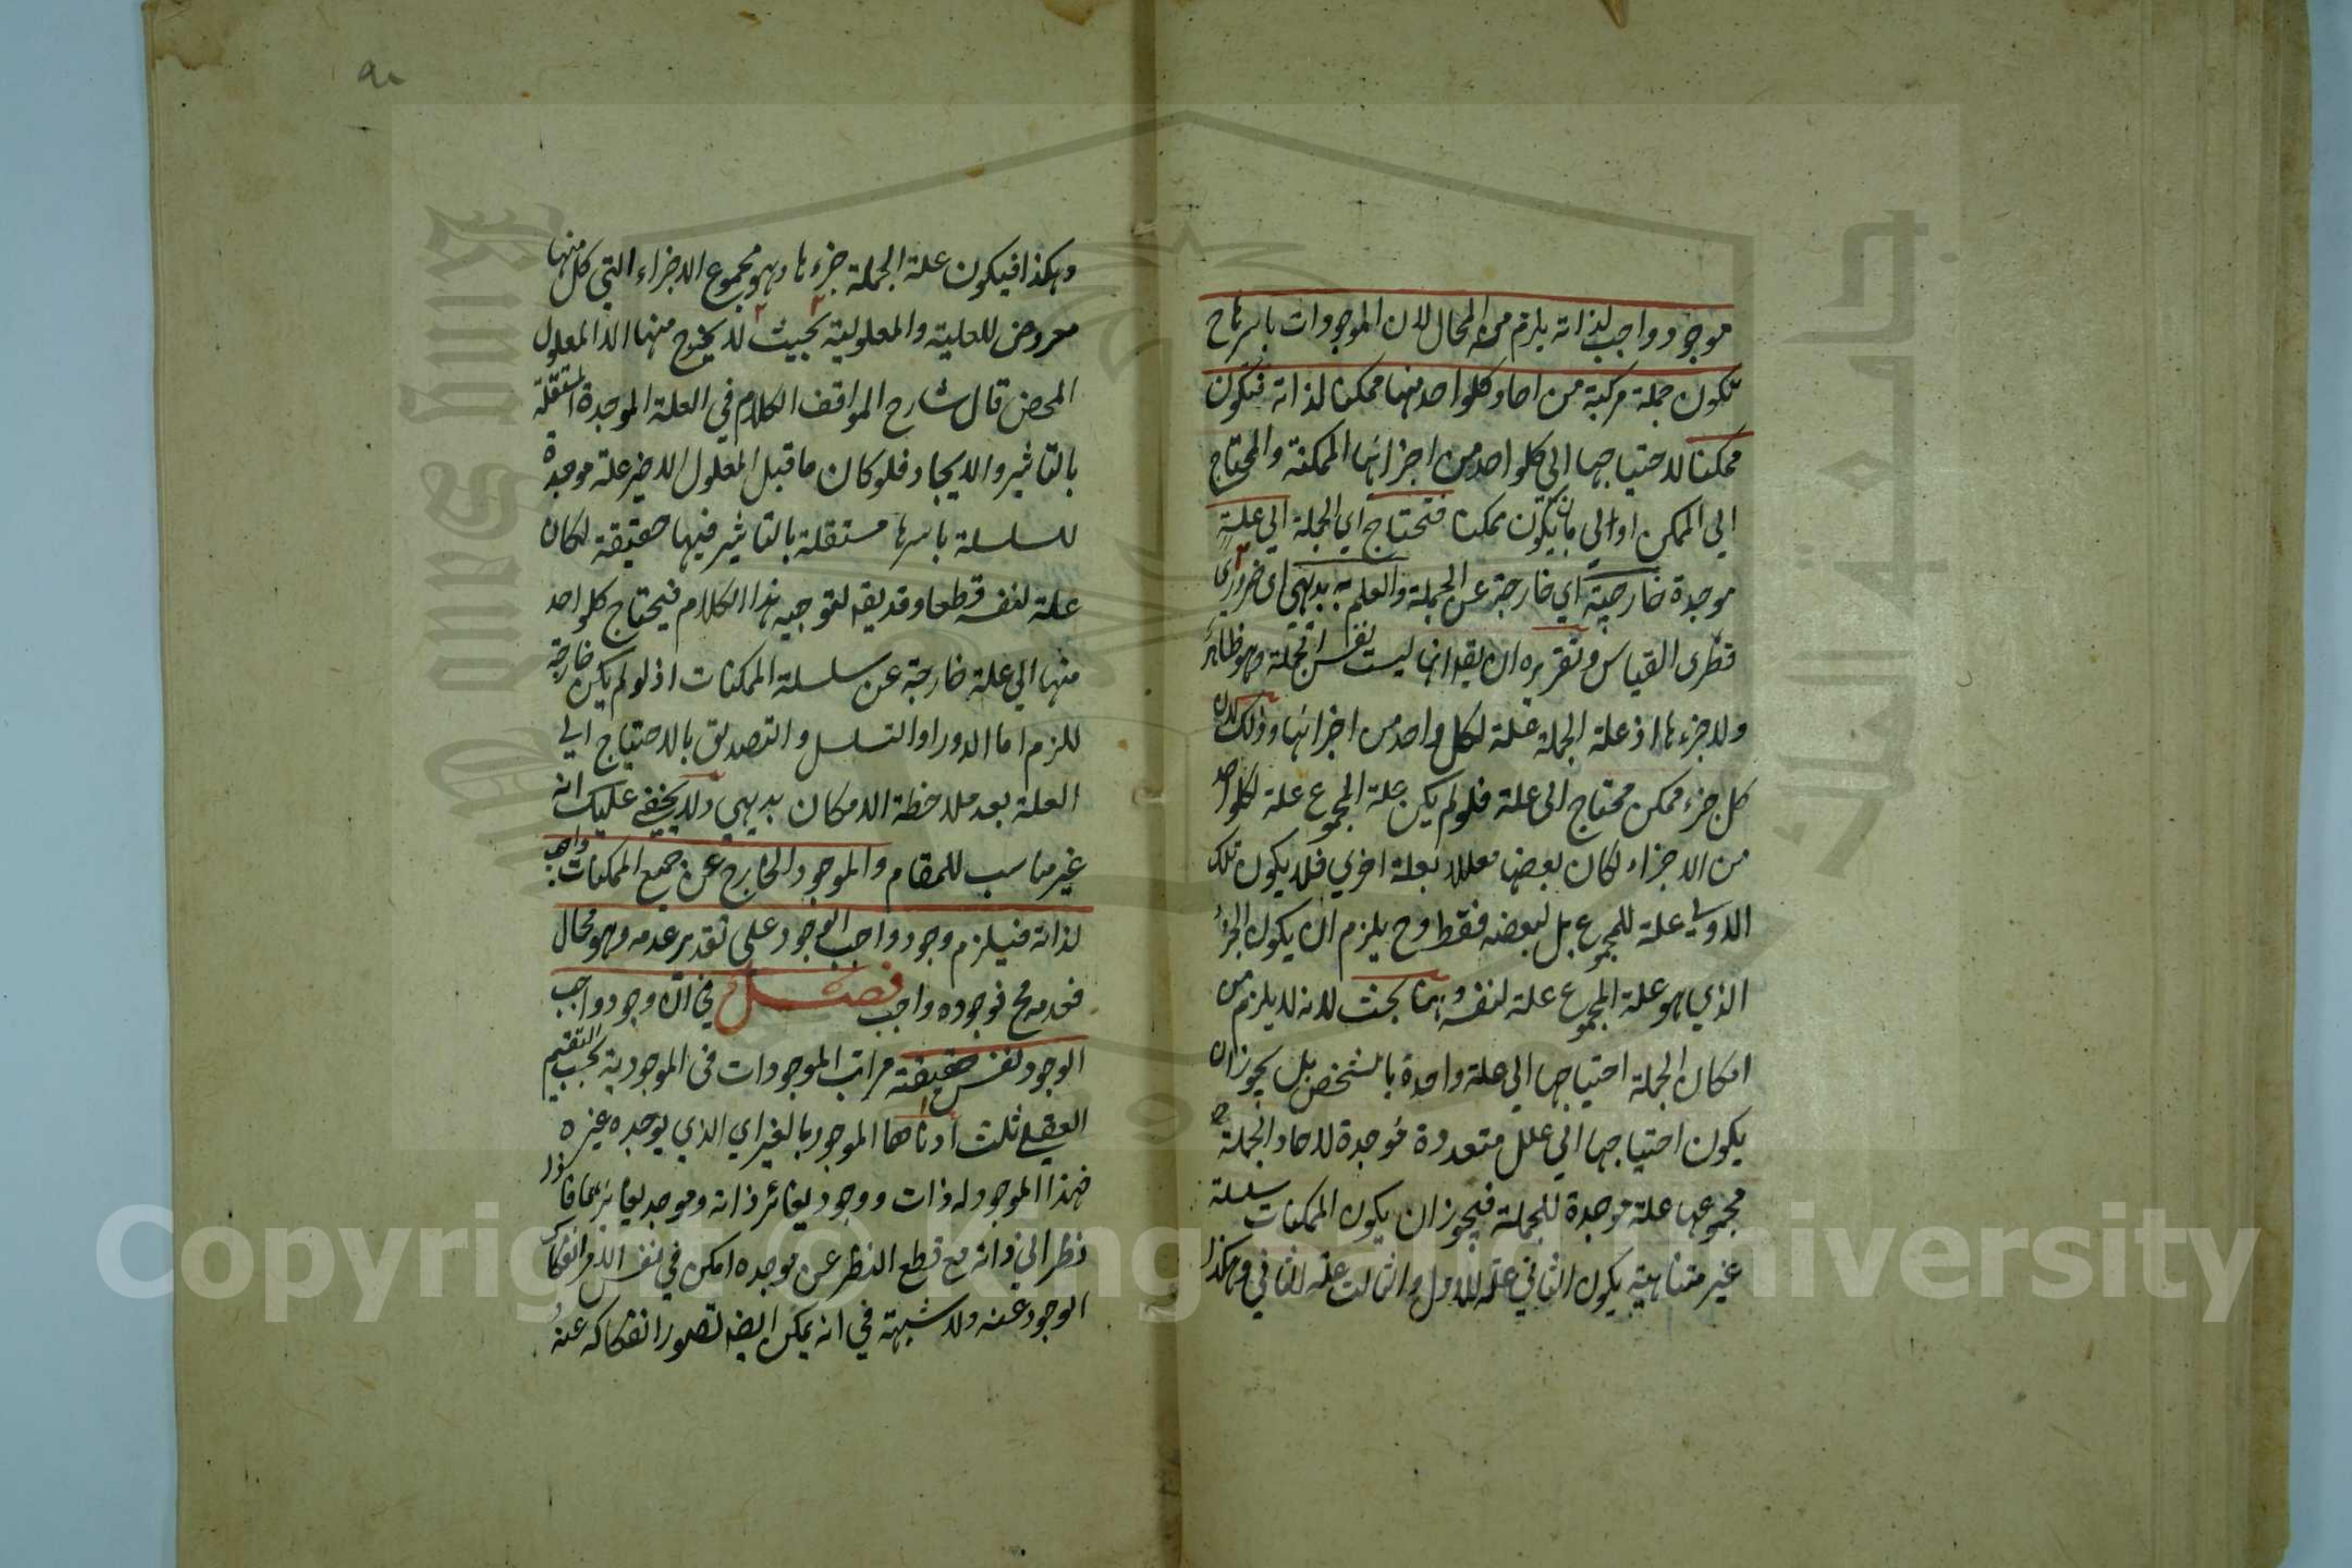 موجود واجب لذاته يلزم منه المحال لان الموجودات باسرها ح
تكون جملة مركبة من احاد كلواحد منها ممكنا لذاته فتكون
ممكنا لاحتياجها الى كلواحد من اجزائها الممكنة والمحتاج
الى الممكن اولى بان يكون ممكنا فتحتاج اي الجملة الى علة
موجدة خارجية اي خارجة عن الجملة والعلم به بديهي اي ضروري
فطرى القياس وتقريره ان يقه انها ليست نفس الجملة وهو ظاهر
ولا جزءها اذ علة الجملة علة لكل واحد من اجزائها وذلك لان
كل جزء ممكن محتاج الى علة فلو لم يكن علة المجموع علة لكلواحد
من الاجزاء لكان بعضها معللا بعلة اخرى فلا يكون تلك
الاولى علة للمجموع بل لبعضه فقط وح يلزم ان يكون الجزء
الذي هو علة المجموع علة لنفسه وههنا بحث لانه لا يلزم من
امكان الجملة احتياجها الى علة واحدة بالشخص بل يجوز ان
يكون احتياجها الى علل متعددة موجدة لاحاد الجملة
مجموعها علة موجدة للجملة فيجوز ان يكون الممكنات سلسلة
غير متناهية يكون الثاني علة للاول والثالث علة للثاني وهكذا
وهكذا فيكون علة الجملة جزءها وهو مجموع الاجزاء التي كل منها
معروض للعلية والمعلولية بحيث لا يخرج منها الا المعلول
المحض قال شارح المواقف الكلام في العلة الموجدة المستقلة
بالتاثير والايجاد فلو كان ما قبل المعلول الاخير علة موجدة
للسلسلة باسرها مستقلة بالتاثير فيها حقيقة لكان
علة لنفسه قطعا وقد يقه لتوجيه هذا الكلام فيحتاج كلواحد
منها الى علة خارجة عن سلسلة الممكنات اذ لو لم يكن خارجة
للزم اما الدور او التسلسل والتصديق بالاحتياج الى
العلة بعد ملاحظة الامكان بديهي ولا يخفى عليك انه
غير مناسب للمقام والموجود الخارج عن جميع الممكنات واجب
لذاته فيلزم وجود واجب الوجود على تقدير عدمه وهو محال
فعدمه مح فوجوده واجب فصل في ان وجود واجب
الوجود نفس حقيقته مراتب الموجودات في الموجودية بحسب التقسيم
العقلي ثلث ادناها الموجود بالغير اي الذي يوجده غيره
فهذا الموجود له ذات ووجود يغائر ذاته وموجد يغايرهما فاذا
نظر الى ذاته مع قطع النظر عن موجده امكن في نفس الامر انفكاك
الوجود عنه ولا شبهة في انه يمكن ايضه تصور انفكاكه عنه
Copyright © King Saud University